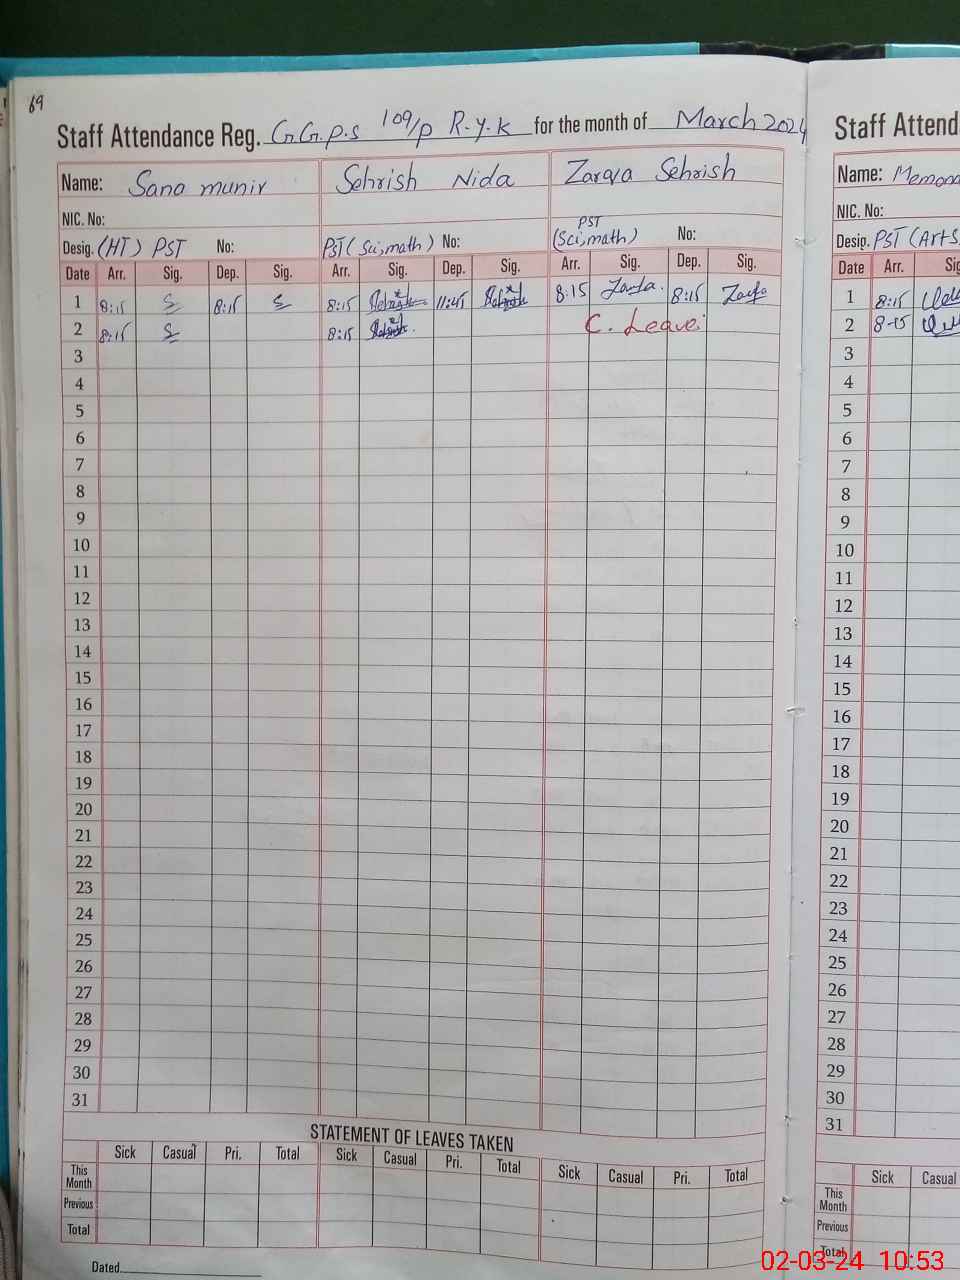 69
Staff Attendance Reg. G.G.P.S 109/P R.Y.K for the month of March 2024
Name: Sana munir Sehrish Nida Zarqa Sehrish
NIC. No:
Desig. (HT) PST No: PST (Sci, math) No: PST (Sci, math) No:
Date Arr. Sig. Dep. Sig. Arr. Sig. Dep. Sig. Arr. Sig. Dep. Sig.
1 8:15 S 8:15 S 8:15 11:45 8:15 Zarqa 8:15 Zarqa
2 8:15 S 8:15 C. Leave
3
4
5
6
7
8
9
10
11
12
13
14
15
16
17
18
19
20
21
22
23
24
25
26
27
28
29
30
31
STATEMENT OF LEAVES TAKEN
Sick Casual Pri. Total Sick Casual Pri. Total Sick Casual Pri. Total
This Month
Previous
Total
Dated
Staff Attend
Name:
NIC. No:
Desig. PST (Arts
Date Arr. Sig.
1 8:15
2 8-15
3
4
5
6
7
8
9
10
11
12
13
14
15
16
17
18
19
20
21
22
23
24
25
26
27
28
29
30
31
Sick Casual
This Month
Previous
Total
02-03-24 10:53